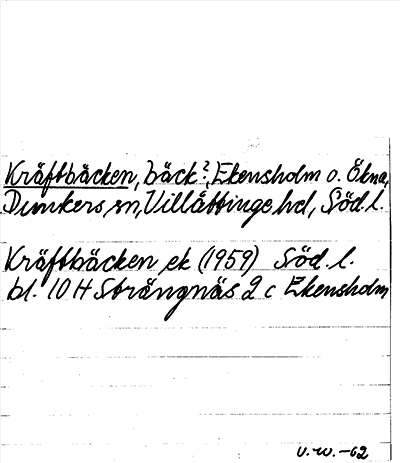 Kräftbäcken, bäck?, Ekensholm o. Ökna,
Dunkers sn, Villåttinge hd, Söd. l.
Kräftbäcken ek (1959) Söd. l.
bl. 10 H Strängnäs 2 c Ekensholm
U.W.-62